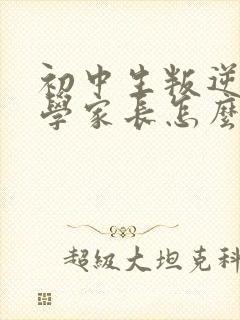 初中生叛逆
學家長怎麼
超級大坦克科